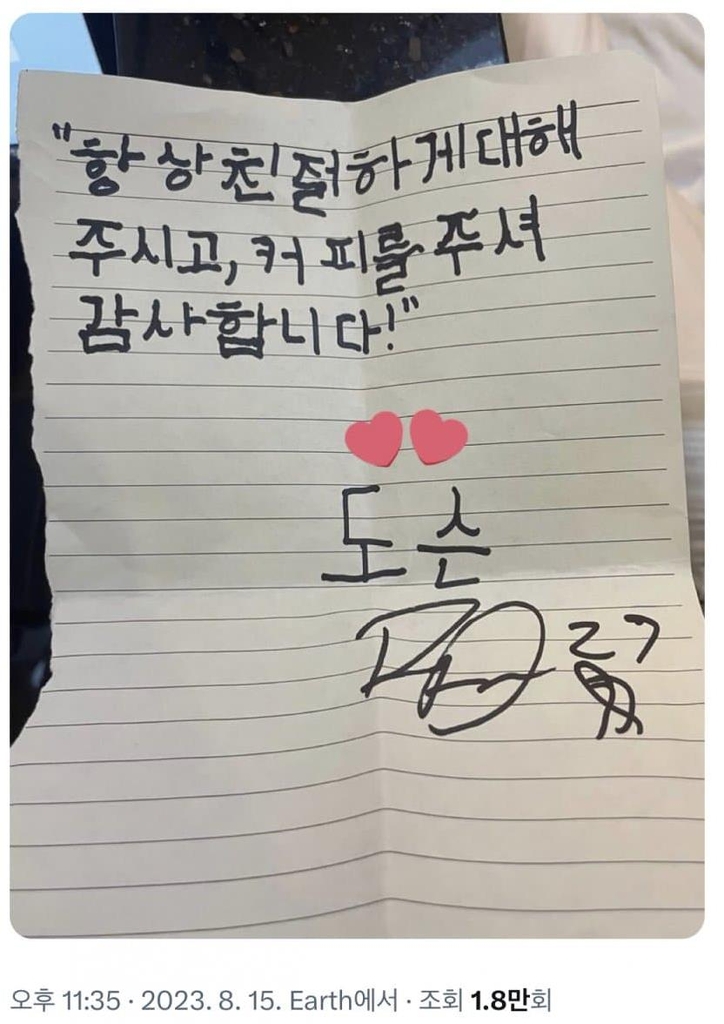 "항상 친절하게 대해
주시고, 커피를 주셔
감사합니다!"
도슨
27
오후 11:35 · 2023. 8. 15. Earth에서 · 조회 1.8만회